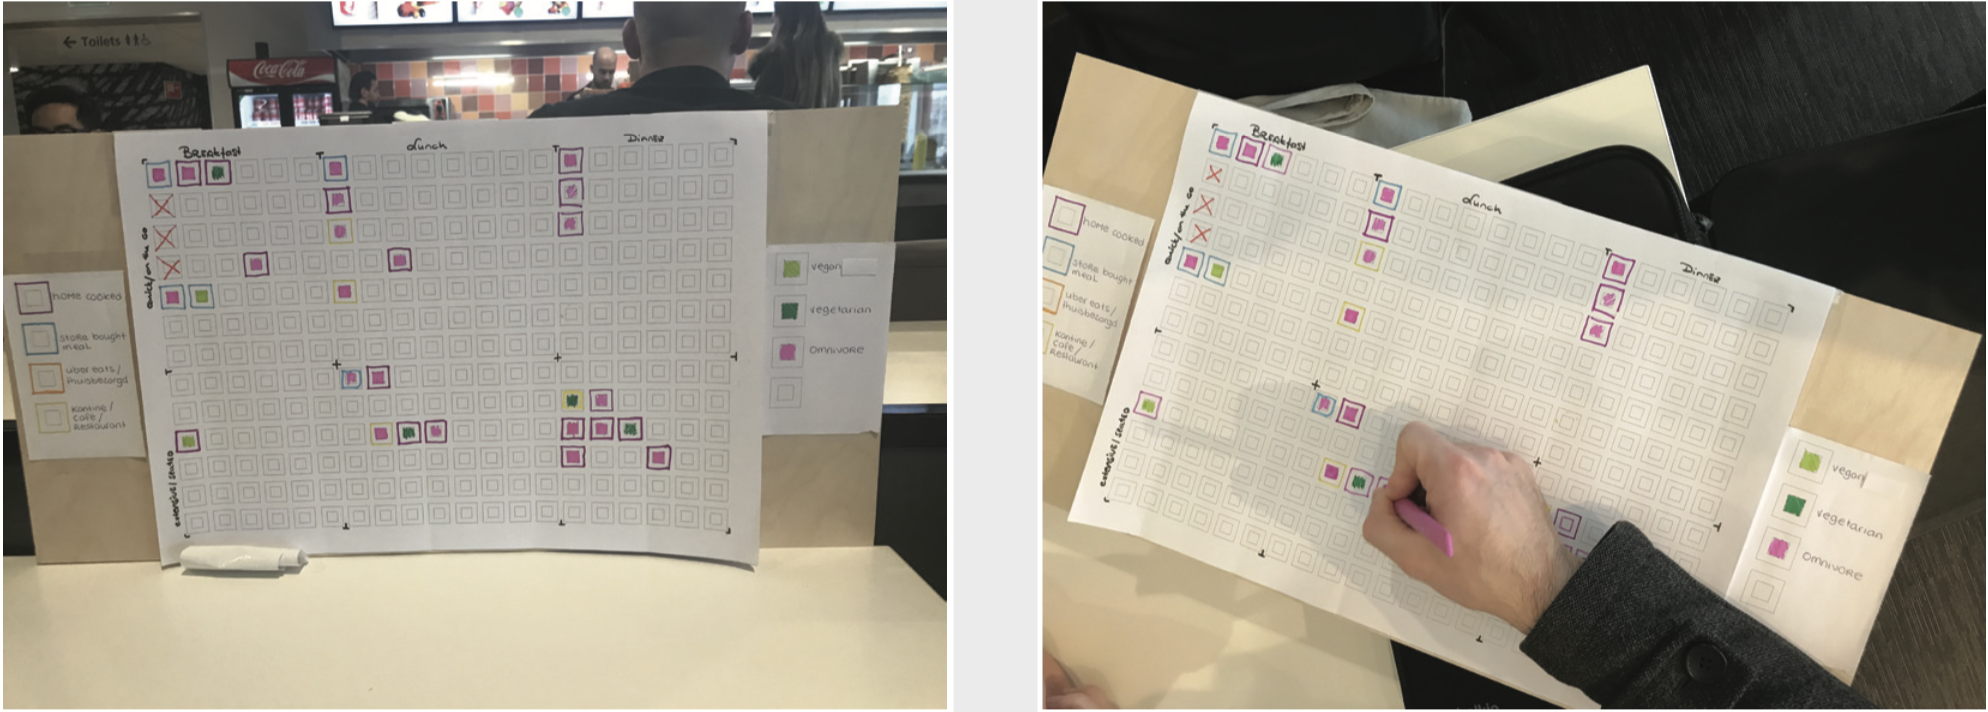 ← Toilets
Coca-Cola
Breakfast
Lunch
Dinner
quick/on the go
extensive/seated
home cooked
store bought
meal
uber eats/
thuisbezorgd
Kantine/
café/
Restaurant
vegan
vegetarian
Omnivore
Breakfast
Lunch
Dinner
quick/on the go
extensive/seated
home cooked
store bought
meal
uber eats/
thuisbezorgd
Kantine/
cafe/
Restaurant
vegan
vegetarian
Omnivore